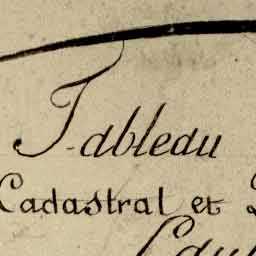 Tableau
Cadastral et